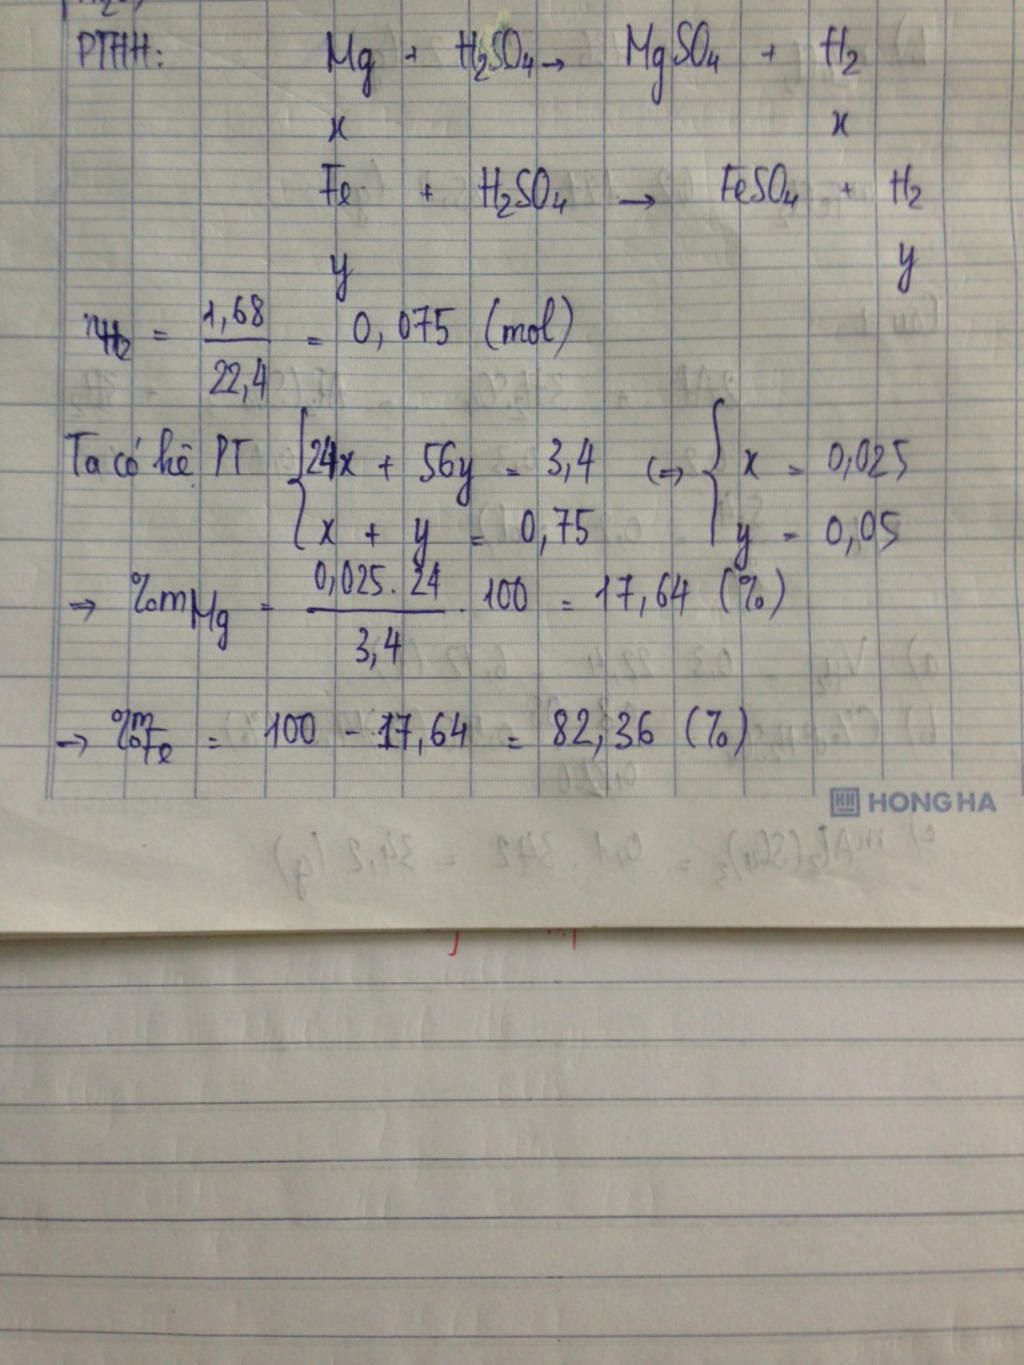 PTHH: Mg + H₂SO₄ → MgSO₄ + H₂
x x
Fe + H₂SO₄ → FeSO₄ + H₂
y y
nH₂ = 1,68 / 22,4 = 0,075 (mol)
Ta có hệ PT { 24x + 56y = 3,4 (=) { x = 0,025
x + y = 0,75 y = 0,05
⇒ %mMg = 0,025.24 / 3,4 . 100 = 17,64 (%)
→ %mFe = 100 - 17,64 = 82,36 (%)
HH HONG HA